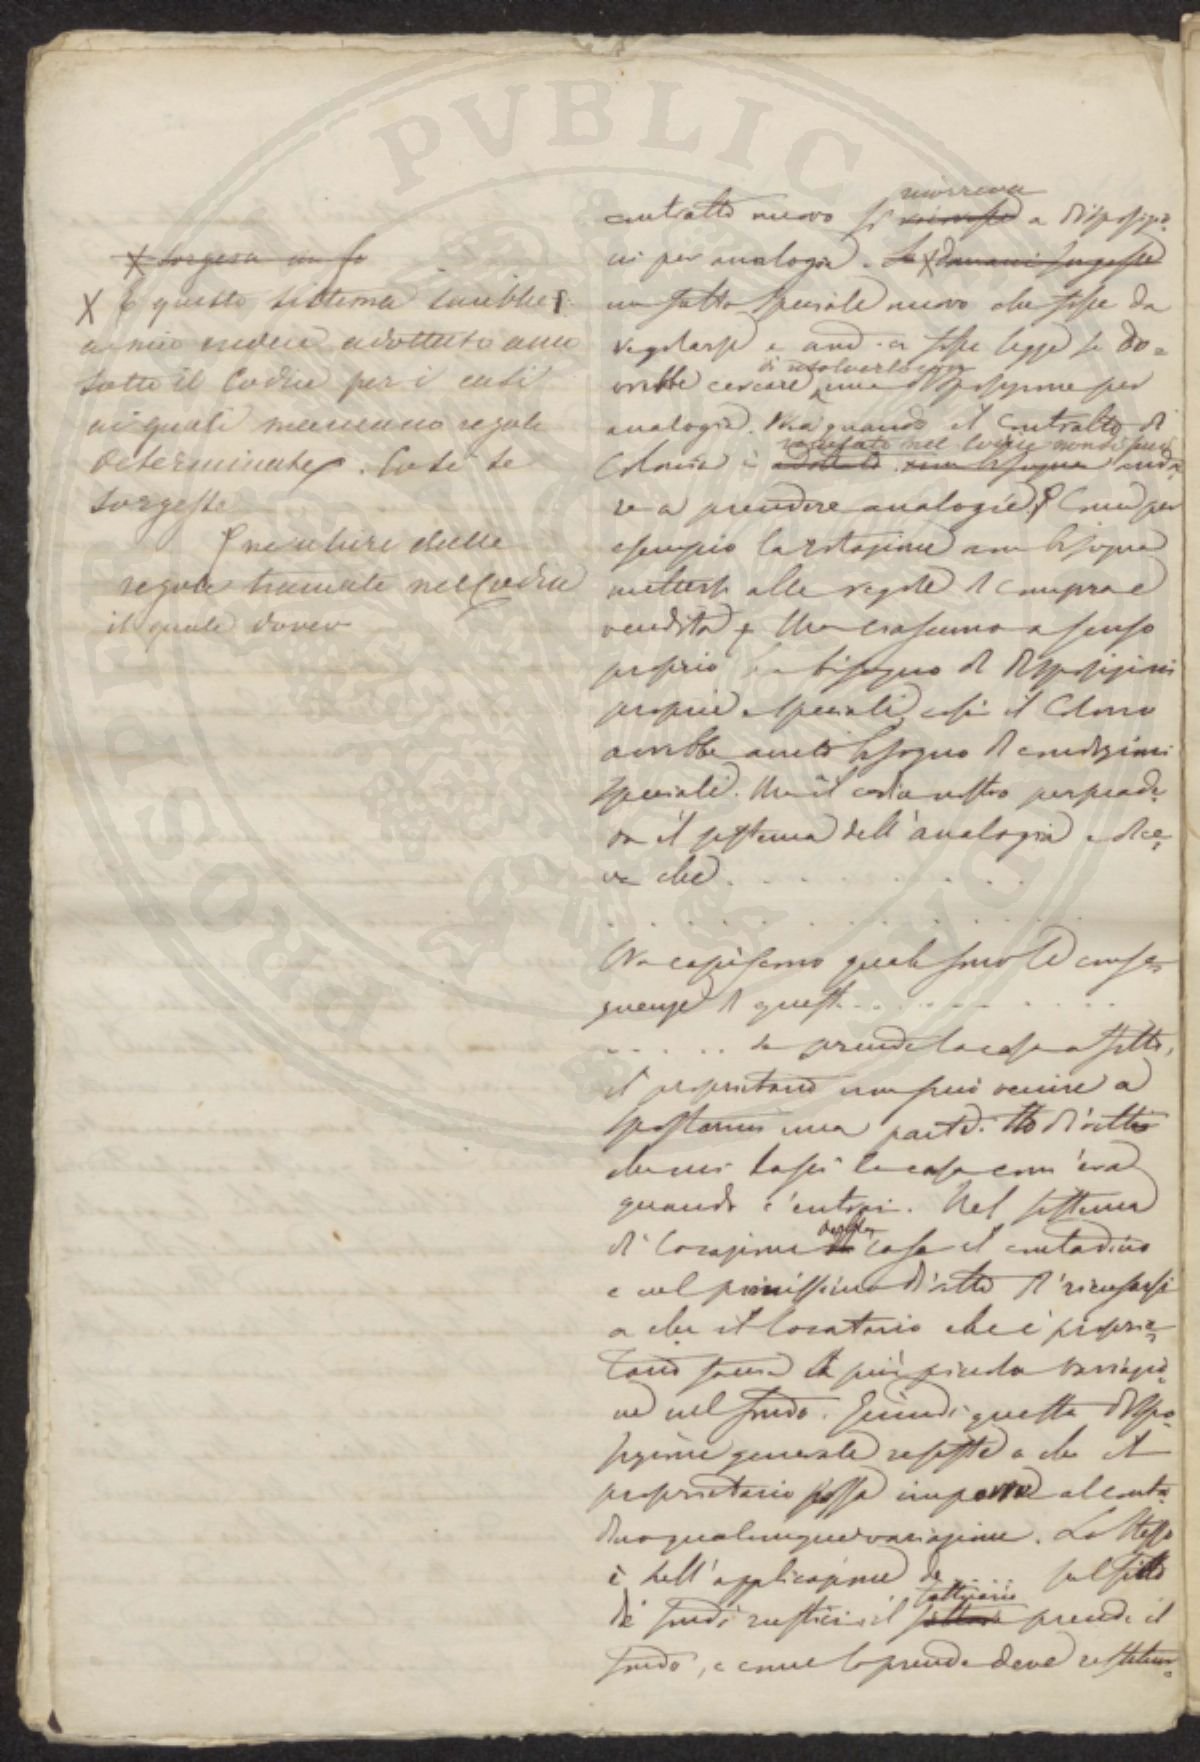 X Sorgesse un fa
X E questo sistema sarebbe
a mio credere adottato anco
sotto il Codice per i casi
ai quali mancano regole
determinate. Così se
sorgesse
ne uscire dalle
regole tracciate nel Codice
il quale dovev
ricorreva
contratto nuovo si a disposizio-
ni per analogia. Se X domani sorgesse
un fatto speciale nuovo che fosse da
regolarsi e non ci fosse legge si do-
di risolverlo con
vrebbe cercare una disposizione per
analogia. Ma quando il contratto di
regolato nel Codice non si può
Colonia è anda-
re a prendere analogie. Come per
esempio la rotazione non bisogna
mettersi alle regole di compra e
vendita, ma ciascuno a senso
proprio ha bisogno di disposizioni
proprie e speciali così il Colono
avrebbe avuto bisogno di condizioni
speciali. Ma il codice nostro
il sistema dell'analogia e dice-
va che . . . . . . . . .
. . . . . . . . . . . .
Ma capiscono quali sono le conse-
guenze di quest. . . . . . . .
. . . . . Se prende la casa a fitto,
il proprietario non può venire a
una parte. Ho diritto
che mi lasci la casa com'era
quando c'entrai. Nel sistema
di locazione casa il contadino
è nel pienissimo diritto di ricusarsi
a che il locatario che è proprie-
tario faccia la più piccola variazio-
ne nel fondo. Quindi questa dispo-
sizione generale resiste a che il
proprietario possa imporre al conta-
dino qualunque variazione. Lo stesso
è dell'applicazione de . . . . sul fitto
fittuario
de' fondi rustici: il prende il
fondo, e come lo prende deve restituir-